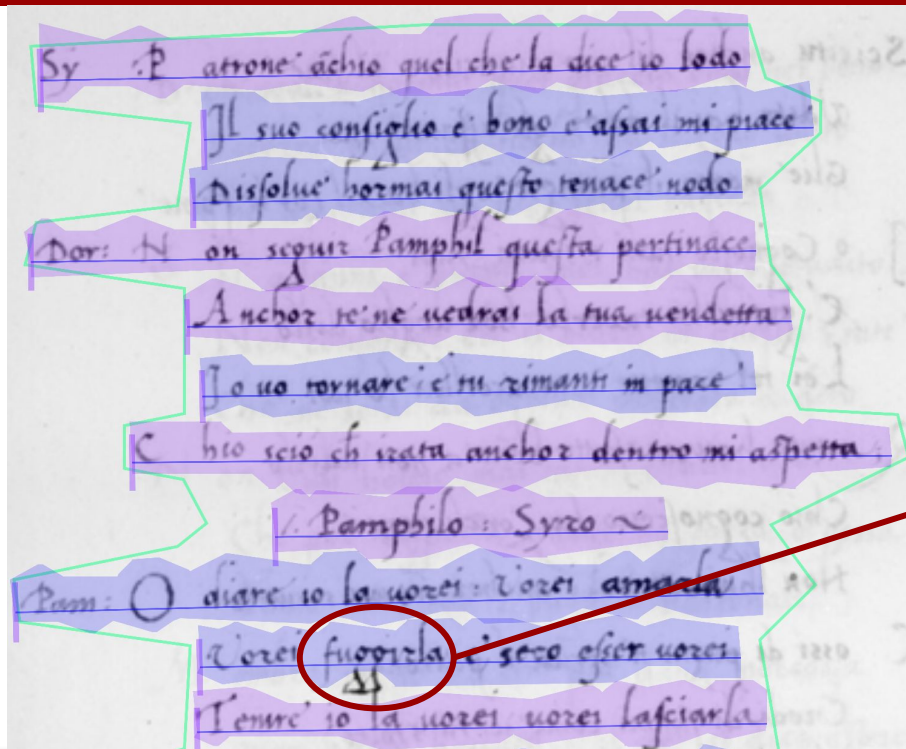 Sy .P atrone āchio quel che la dice io lodo
Il suo consiglio e' bono e' assai mi piace'
Dissolue' hormai questo tenace nodo
Dor: N on seguir Pamphil questa pertinace
Anchor te' ne uedrai la tua uendetta
Io uo tornare' e' tu rimanti in pace'
C hio scio ch irata anchor dentro mi aspetta
/. Pamphilo : Syro ~
Pam: O diare io la uorei : Vorei amarla
Vorei fuggirla e' seco esser uorei
Temre' io la uorei uorei lasciarla